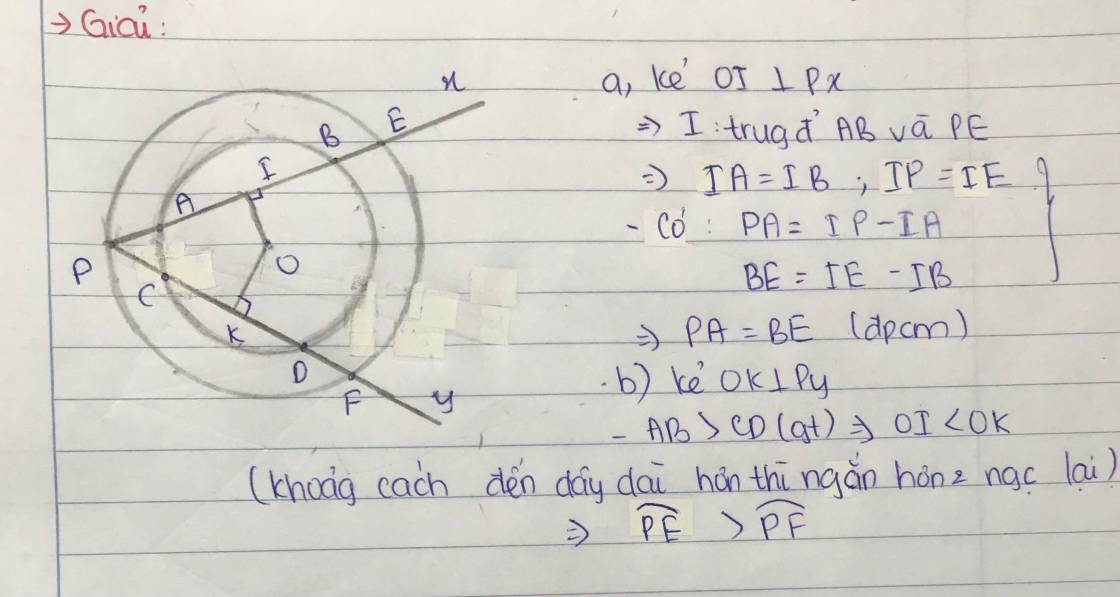 → Giải:
x
E
B
I
A
P
O
C
K
D
F
y
a, kẻ OI ⊥ Px
=> I: trug đ' AB và PE
=> IA = IB ; IP = IE
- Có: PA = IP - IA
BE = IE - IB
=> PA = BE (đpcm)
.b) kẻ OK ⊥ Py
- AB > CD (gt) => OI < OK
(khoảg cách đến dây dài hơn thì ngắn hơn & ngc lại)
=> PE > PF